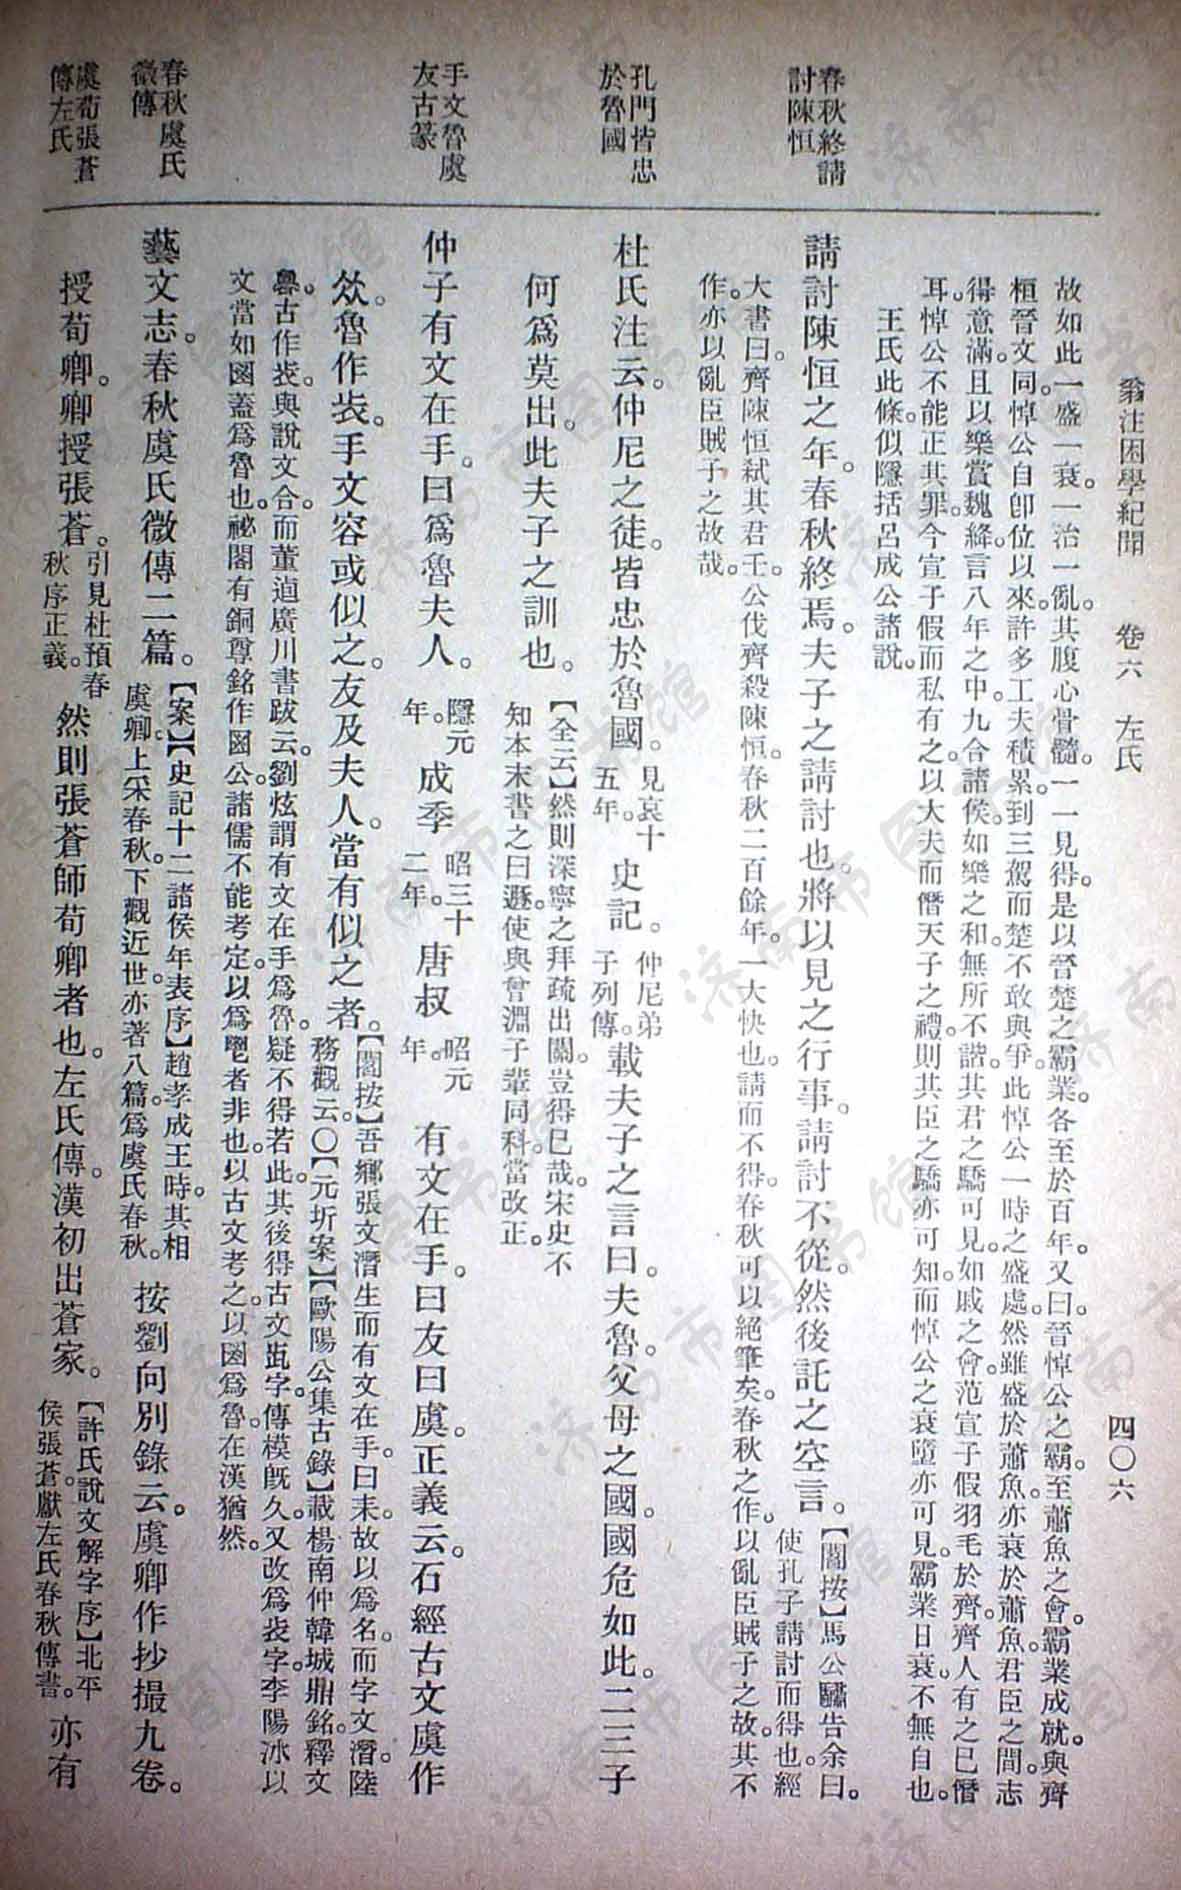 翁注困學紀聞　卷六　左氏　四〇六
故如此一盛一衰。一治一亂。其腹心骨髓。一一見得。是以晉楚之霸業。各至於百年。又曰。晉悼公之霸。至蕭魚之會。霸業成就。與齊
桓晉文同。悼公自卽位以來。許多工夫積累。到三駕而楚不敢與爭。此悼公一時之盛處。然雖盛於蕭魚。亦衰於蕭魚。君臣之間。志
得意滿。且以樂賞魏絳。言八年之中。九合諸侯。如樂之和。無所不諧。其君之驕可見。如戚之會。范宣子假羽毛於齊。齊人有之已僭
耳。悼公不能正其罪。今宣子假而私有之。以大夫而僭天子之禮。則其臣之驕亦可知。而悼公之衰墮亦可見。霸業日衰。不無自也。
王氏此條。似隱括呂成公諸說。
春秋終請
討陳恒
請討陳恒之年。春秋終焉。夫子之請討也。將以見之行事。請討不從。然後託之空言。
【閻按】馬公驌告余曰。
使孔子請討而得也。經
大書曰。齊陳恒弒其君壬。公伐齊殺陳恒。春秋二百餘年。一大快也。請而不得。春秋可以絕筆矣。春秋之作。以亂臣賊子之故。其不
作。亦以亂臣賊子之故哉。
孔門皆忠
於魯國
杜氏注云。仲尼之徒。皆忠於魯國。
見哀十
五年。
史記。
仲尼弟
子列傳。
載夫子之言曰。夫魯。父母之國。國危如此。二三子
何爲莫出。此夫子之訓也。
【全云】然則深寧之拜疏出關。豈得已哉。宋史不
知本末。書之曰遯。使與曾淵子輩同科。當改正。
手文魯虞
友古篆
仲子有文在手。曰爲魯夫人。
隱元
年。
成季
昭三十
二年。
唐叔
昭元
年。
有文在手。曰友曰虞。正義云。石經古文虞作
㒫。魯作㫺。手文容或似之。友及夫人。當有似之者。
【閻按】吾鄉張文潛生而有文在手。曰耒。故以爲名。而字文潛。陸
務觀云。〇【元圻案】【歐陽公集古錄】載楊南仲韓城鼎銘。釋文
古作與說文合。而董逌廣川書跋云。劉炫謂有文在手爲魯。疑不得若此。其後得古文字。傳模旣久。又改爲字。李陽冰以
文當如蓋爲魯也。祕閣有銅尊銘作公。諸儒不能考定。以爲者非也。以古文考之。以爲魯。在漢猶然。
春秋虞氏
微傳
藝文志。春秋虞氏微傳二篇。
【案】【史記十二諸侯年表序】趙孝成王時。其相
虞卿。上采春秋。下觀近世。亦著八篇。爲虞氏春秋。
按劉向別錄云。虞卿作抄撮九卷。
虞荀張蒼
傳左氏
授荀卿。卿授張蒼。
引見杜預春
秋序正義。
然則張蒼師荀卿者也。左氏傳。漢初出蒼家。
【許氏說文解字序】北平
侯張蒼。獻左氏春秋傳書。
亦有